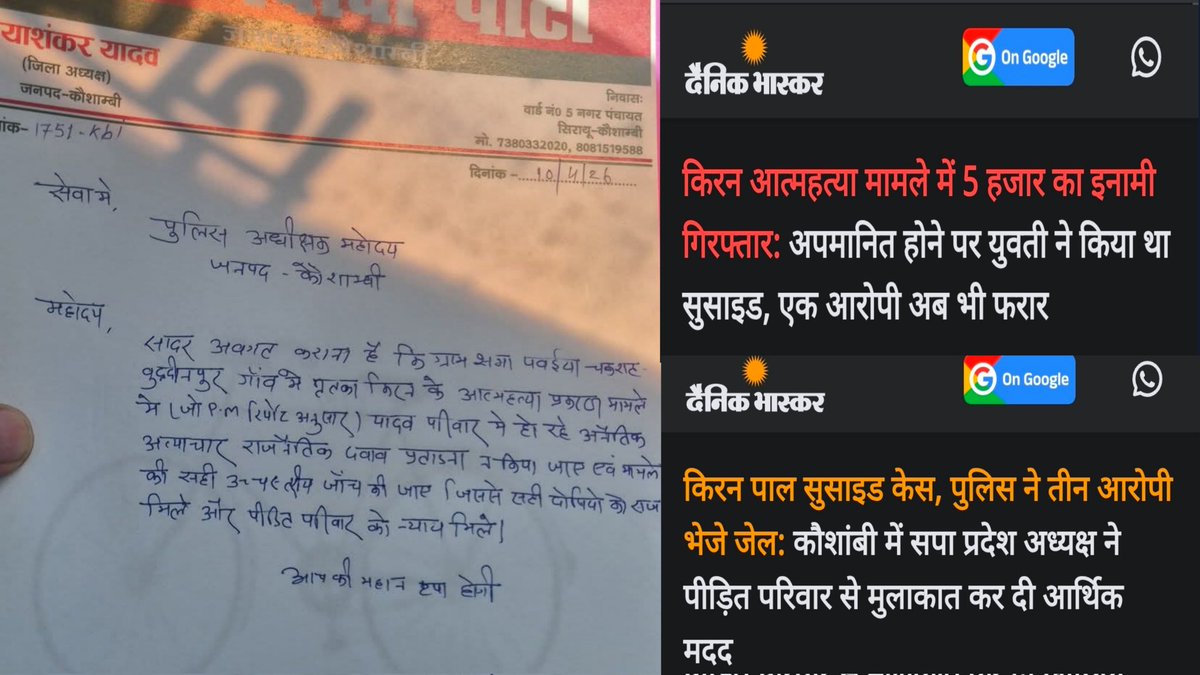 याशंकर यादव
(जिला अध्यक्ष)
जनपद-कौशाम्बी
जनपद कौशाम्बी
निवासः
वार्ड नं0 5 नगर पंचायत
सिराथू-कौशाम्बी
मो. 7380332020, 8081519588
ांक-1751-Kbi
दिनांक - 10/4/26
सेवा मे,
पुलिस अधीक्षक महोदय
जनपद - कौशाम्बी
महोदय,
सादर अवगत कराना है कि ग्राम सभा पवईया चकशाह
गाँव मे मृतका किरन के आत्महत्या प्रकरण मामले
मे (जो P.M रिपोर्ट अनुसार) यादव परिवार मे हो रहे अनैतिक
अत्याचार राजनैतिक दवाव प्रताडना न किया जाए एवं मामले
की सही उच्चस्तरीय जाँच की जाए जिससे सही दोषियो को सजा
मिले और पीडित परिवार को न्याय मिले।
आपकी महान कृपा होगी
दैनिक भास्कर
G On Google
किरन आत्महत्या मामले में 5 हजार का इनामी
गिरफ्तार: अपमानित होने पर युवती ने किया था
सुसाइड, एक आरोपी अब भी फरार
दैनिक भास्कर
G On Google
किरन पाल सुसाइड केस, पुलिस ने तीन आरोपी
भेजे जेल: कौशांबी में सपा प्रदेश अध्यक्ष ने
पीड़ित परिवार से मुलाकात कर दी आर्थिक
मदद